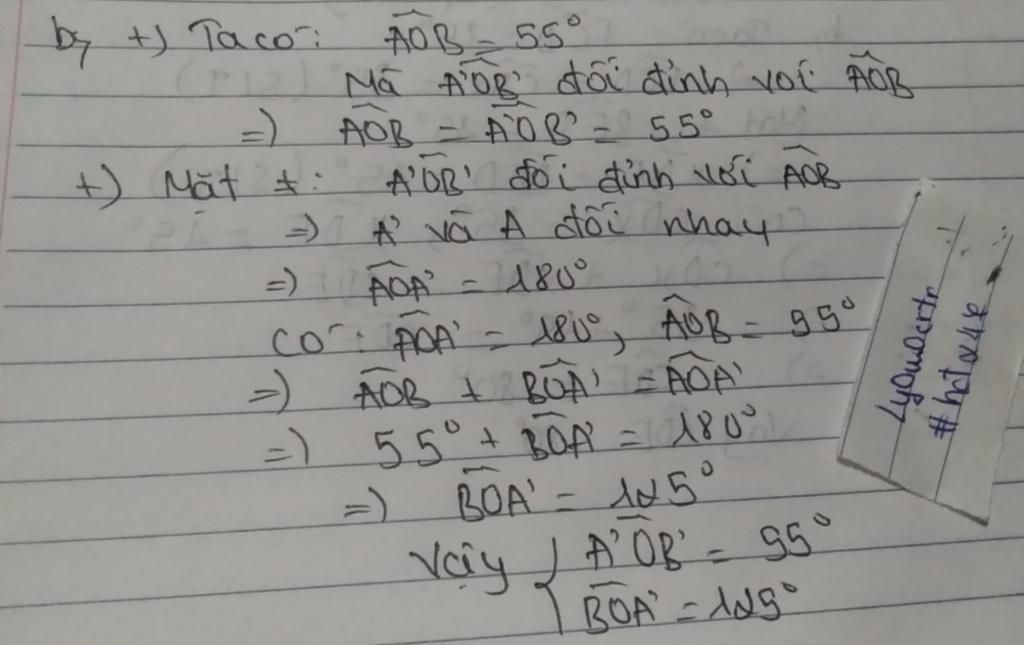 b, +) Ta có: AOB = 55°
Mà A'OB' đối đỉnh với AOB
=> AOB = A'OB' = 55°
+) Mặt ≠: A'OB' đối đỉnh với AOB
=> A' và A đối nhau
=> AOA' = 180°
Có: AOA' = 180°, AOB = 55°
=> AOB + BOA' = AOA'
=> 55° + BOA' = 180°
=> BOA' = 125°
Vậy { A'OB' = 55°
BOA' = 125°